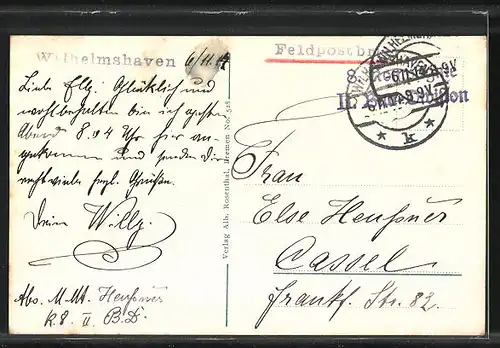 Wilhelmshaven 6/11.
Feldpost
Liebe Elly! Glücklich und
wohlbehalten bin ich gestern
Abend 8.04 Uhr hier an-
gekommen und sende Dir
recht viele herzl. Grüße.
Dein Willy.
Abs. M. Mt. Heußner
II. B.D.
Verlag Alb. Rosenthal, Bremen No.
WILHELMSHAVEN
8-9.V
* k *
II.
Frau
Else Heußner
Cassel
Frankf. Str. 82.